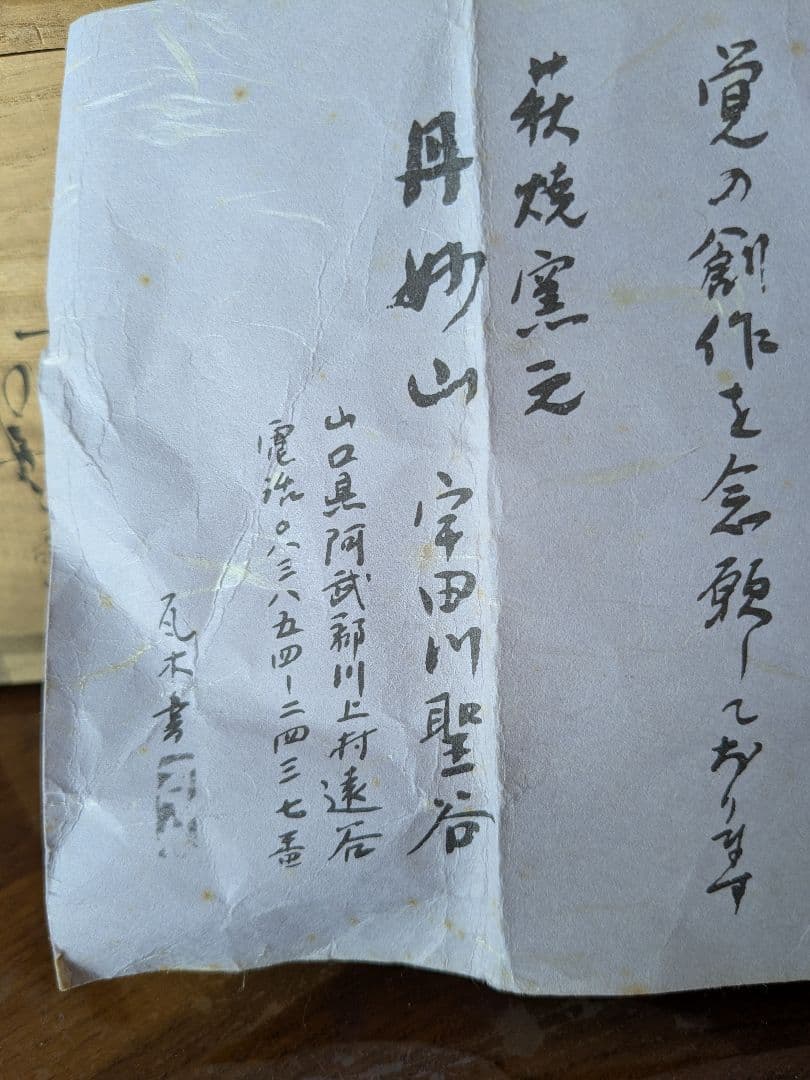 覚の創作を念願しております
萩焼窯元
丹妙山 宇田川聖谷
山口県阿武郡川上村遠谷
電話〇八三八五四ー二四三七番
瓦木書